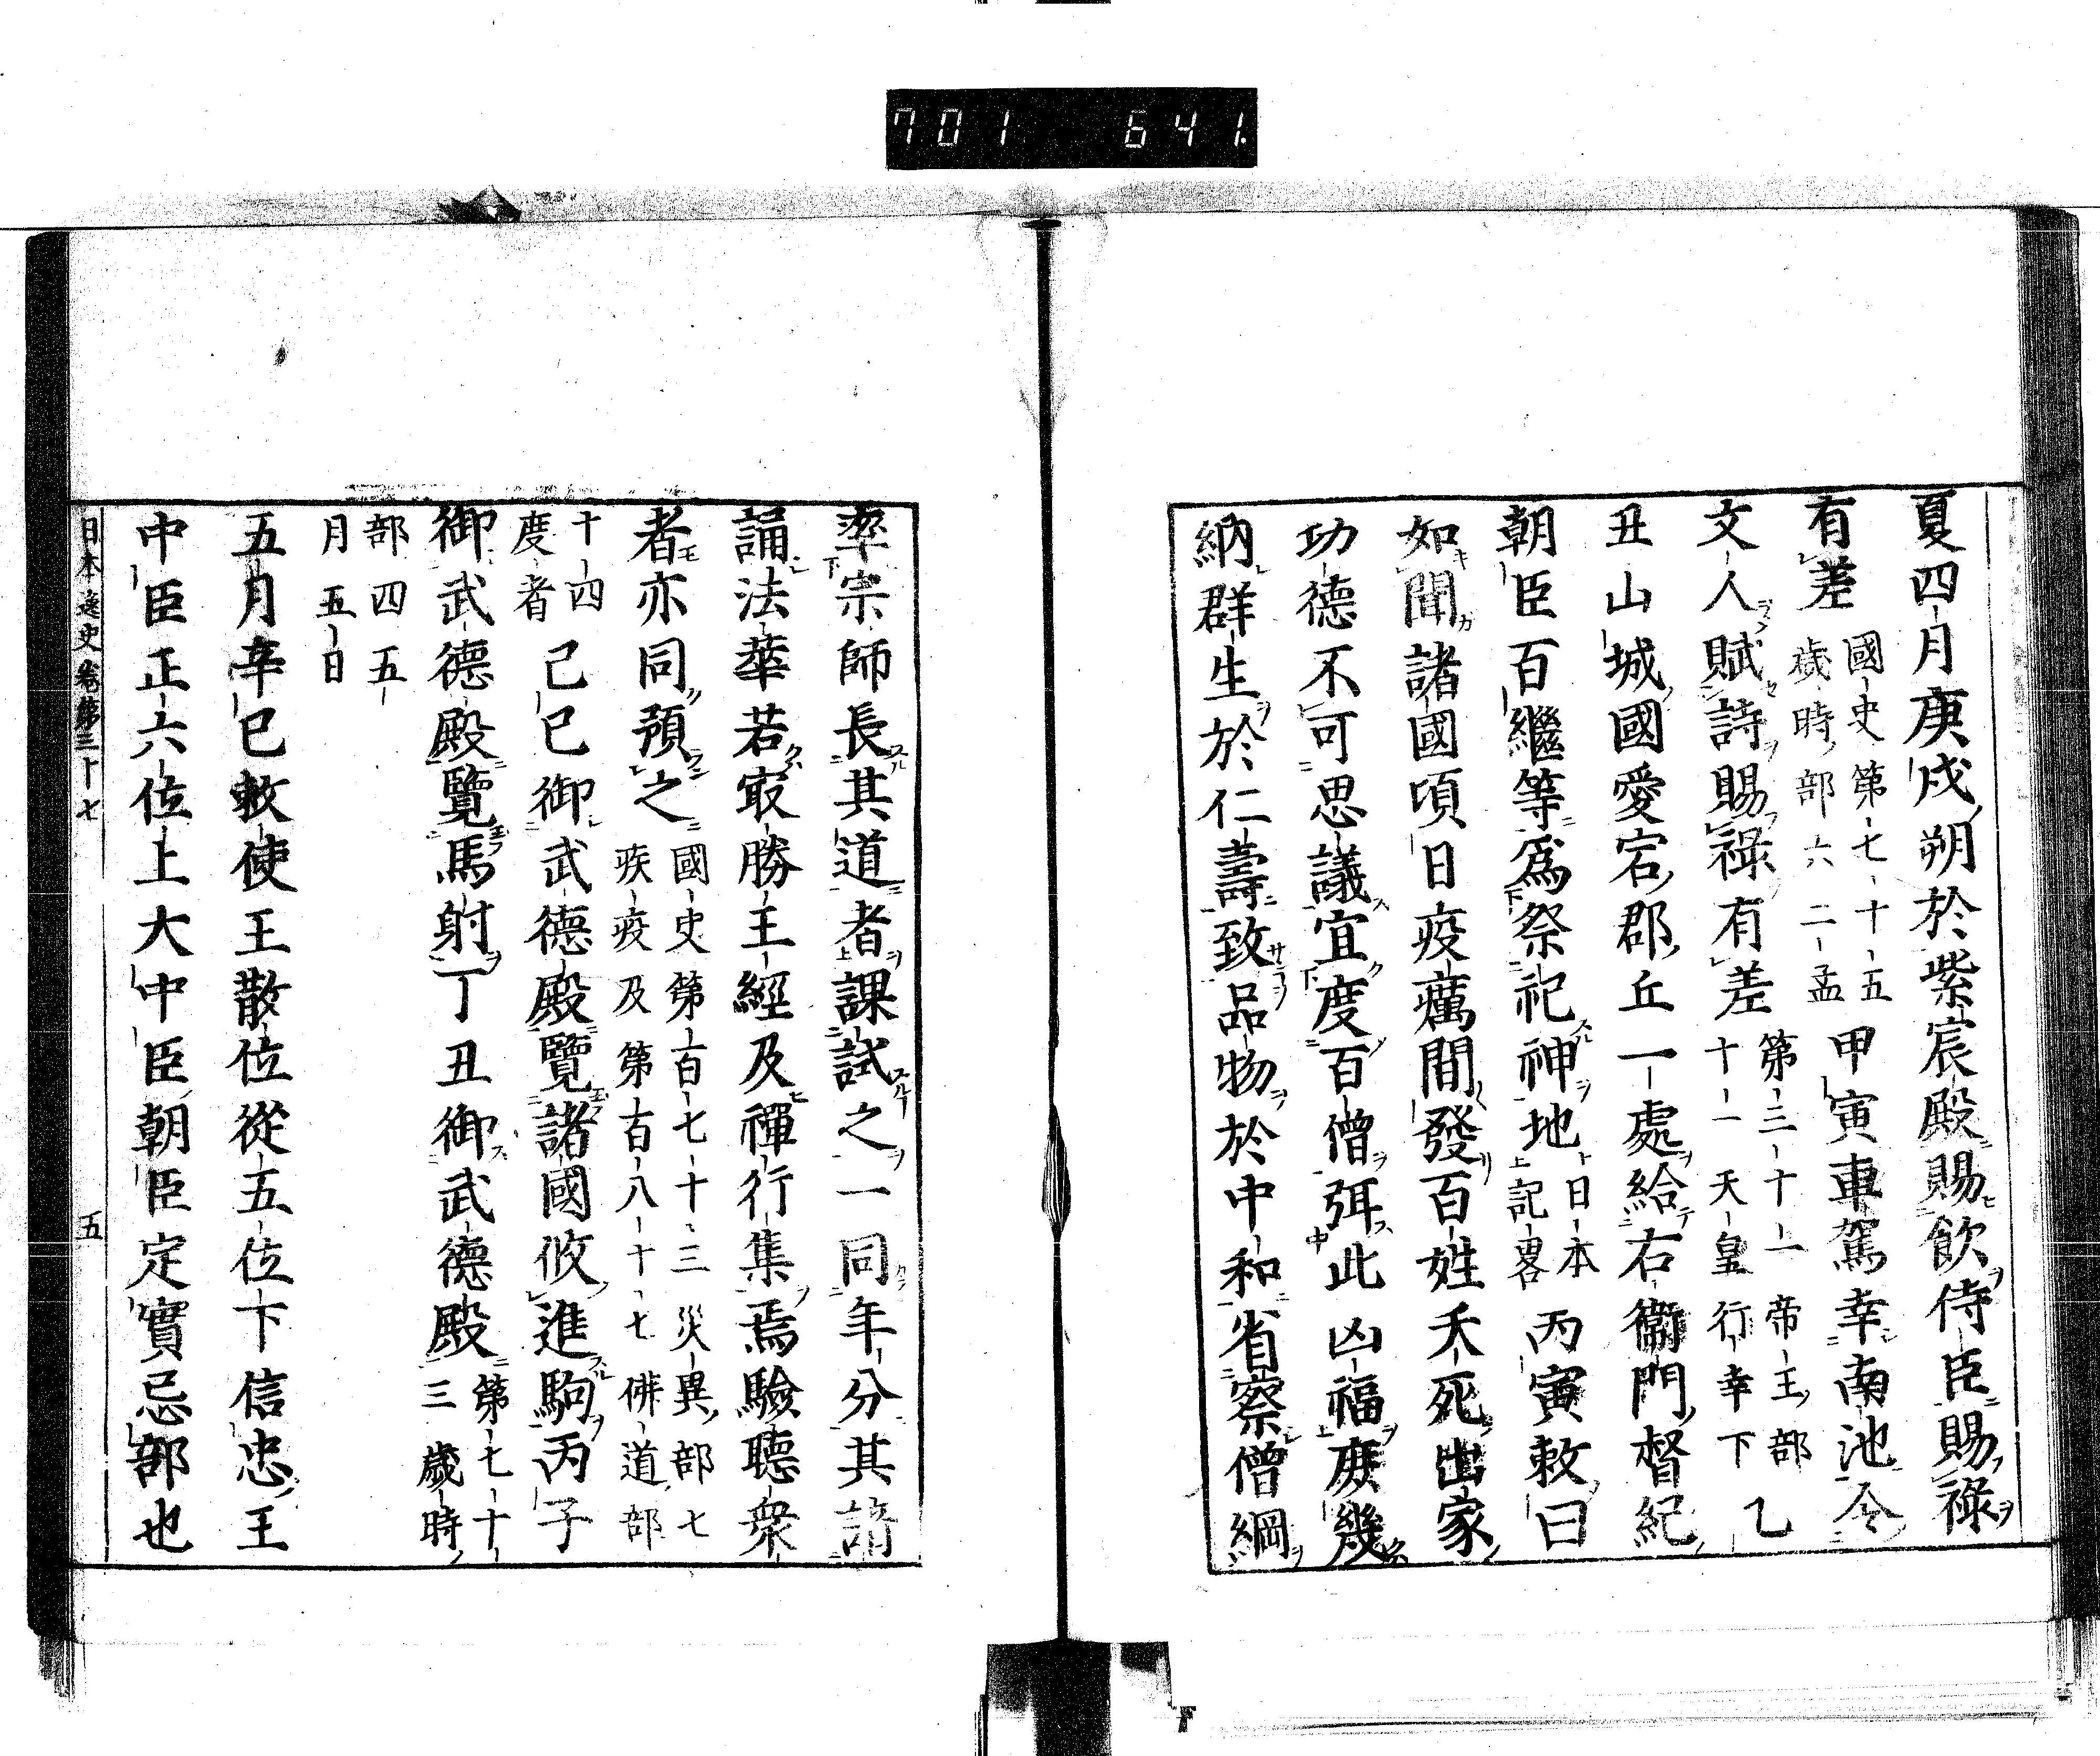 701 641
夏四月庚戌朔於紫宸殿賜飲侍臣賜祿
有差 國史第七十五
歲時部六二孟 甲寅車駕幸南池令
文人賦詩賜祿有差 第三十一帝王部
十一天皇行幸下 乙
丑山城國愛宕郡丘一處給右衞門督紀
朝臣百繼等爲祭祀神地 日本
記畧 丙寅敕曰
如聞諸國頃日疫癘間發百姓夭死出家
功德不可思議宜度百僧弭此凶福庻幾
納群生於仁壽致品物於中和省察僧綱
率宗師長其道者課試之一同年分其諳
誦法華若㝡勝王經及禪行集焉驗聴衆
者亦同預之 國史第百七十三災異部七
疾疫及第百八十七佛道部
十四
度者 己巳御武德殿覽諸國攸進駒丙子
御武德殿覽馬射丁丑御武德殿 第七十
三歲時
部四五
月五日
五月辛巳敕使王散位從五位下信忠王
中臣正六位上大中臣朝臣定實忌部也
日本逸史卷第三十七 五